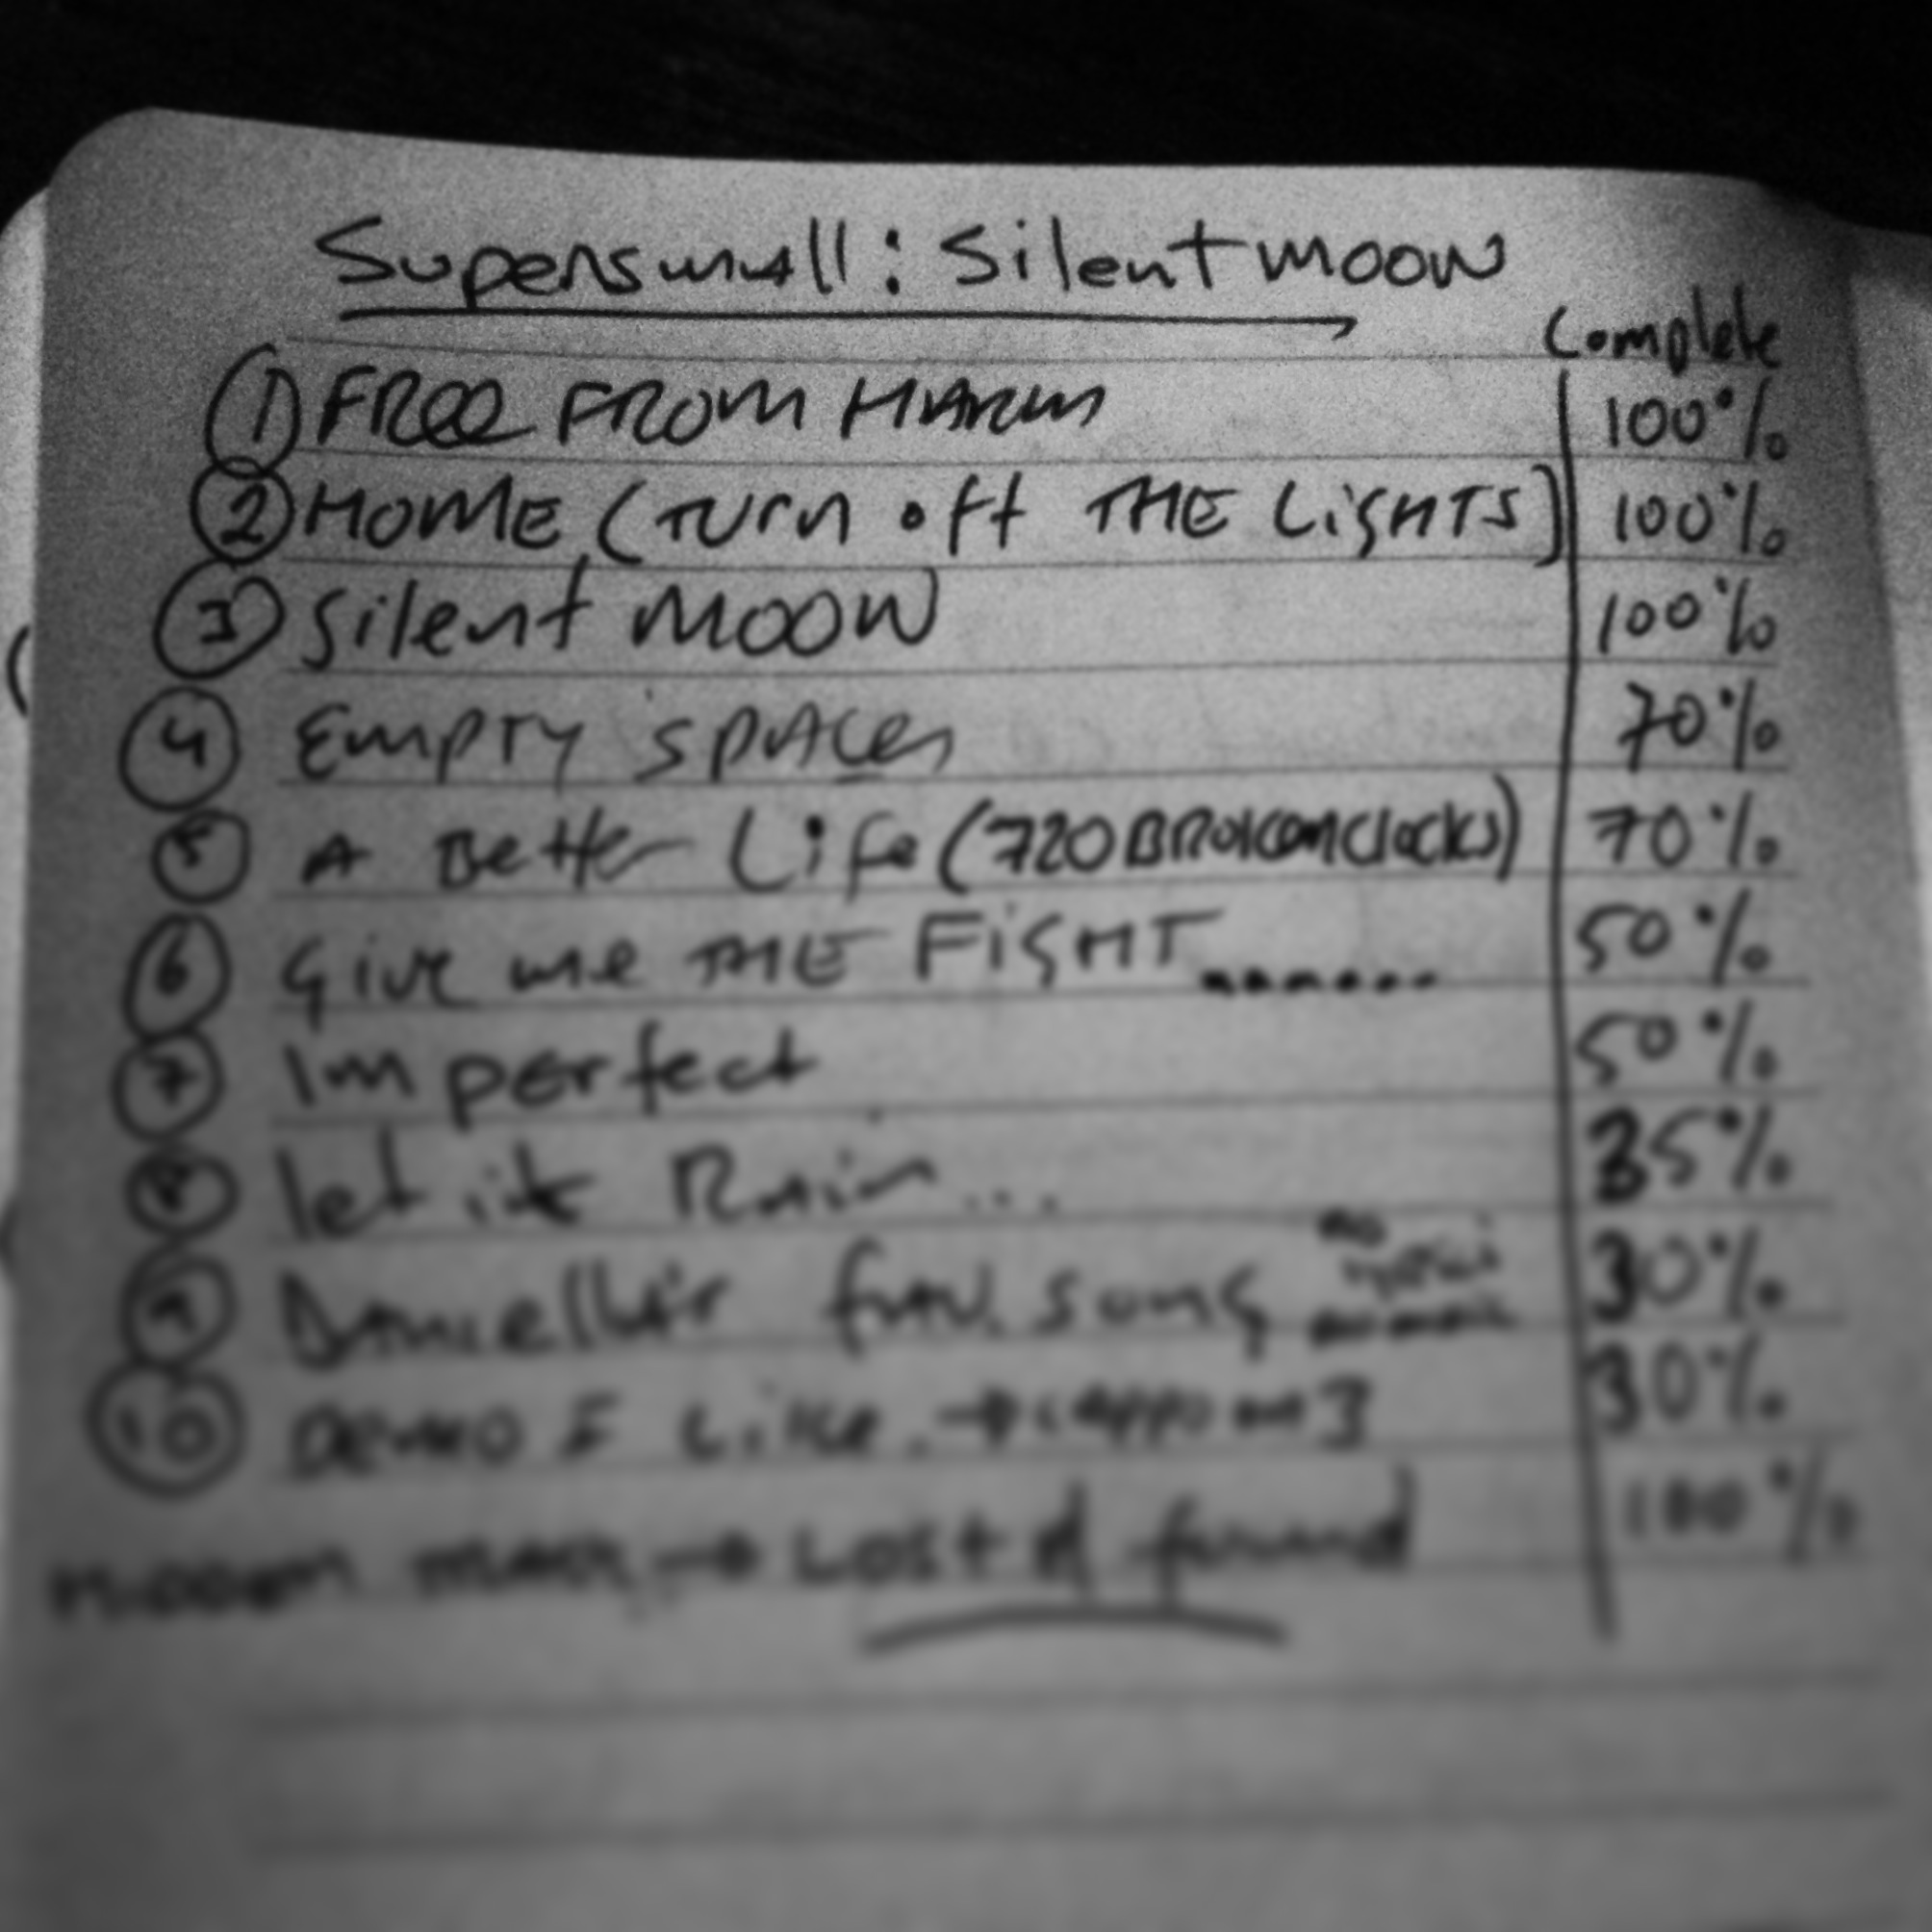 Supersmall: Silent moon
Complete
① FREE FROM HARM 100%
② HOME (TURN off THE LiGHTS) 100%
③ Silent MOON 100%
④ Empty spaces 70%
⑤ A Better Life (720 BROKEN Clocks) 70%
⑥ Give me THE FiGHT....... 50%
⑦ Imperfect 50%
⑧ let it Rain... 35%
⑨ Danielle's fav. song 30%
⑩ DEMO I Like. → 30%
HiDDEN TRACK → Lost & found 100%